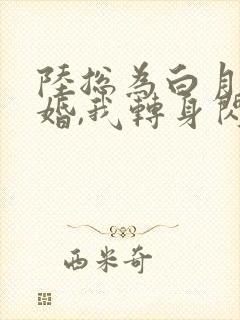 陸總為白月
婚,我轉身閃
西米奇